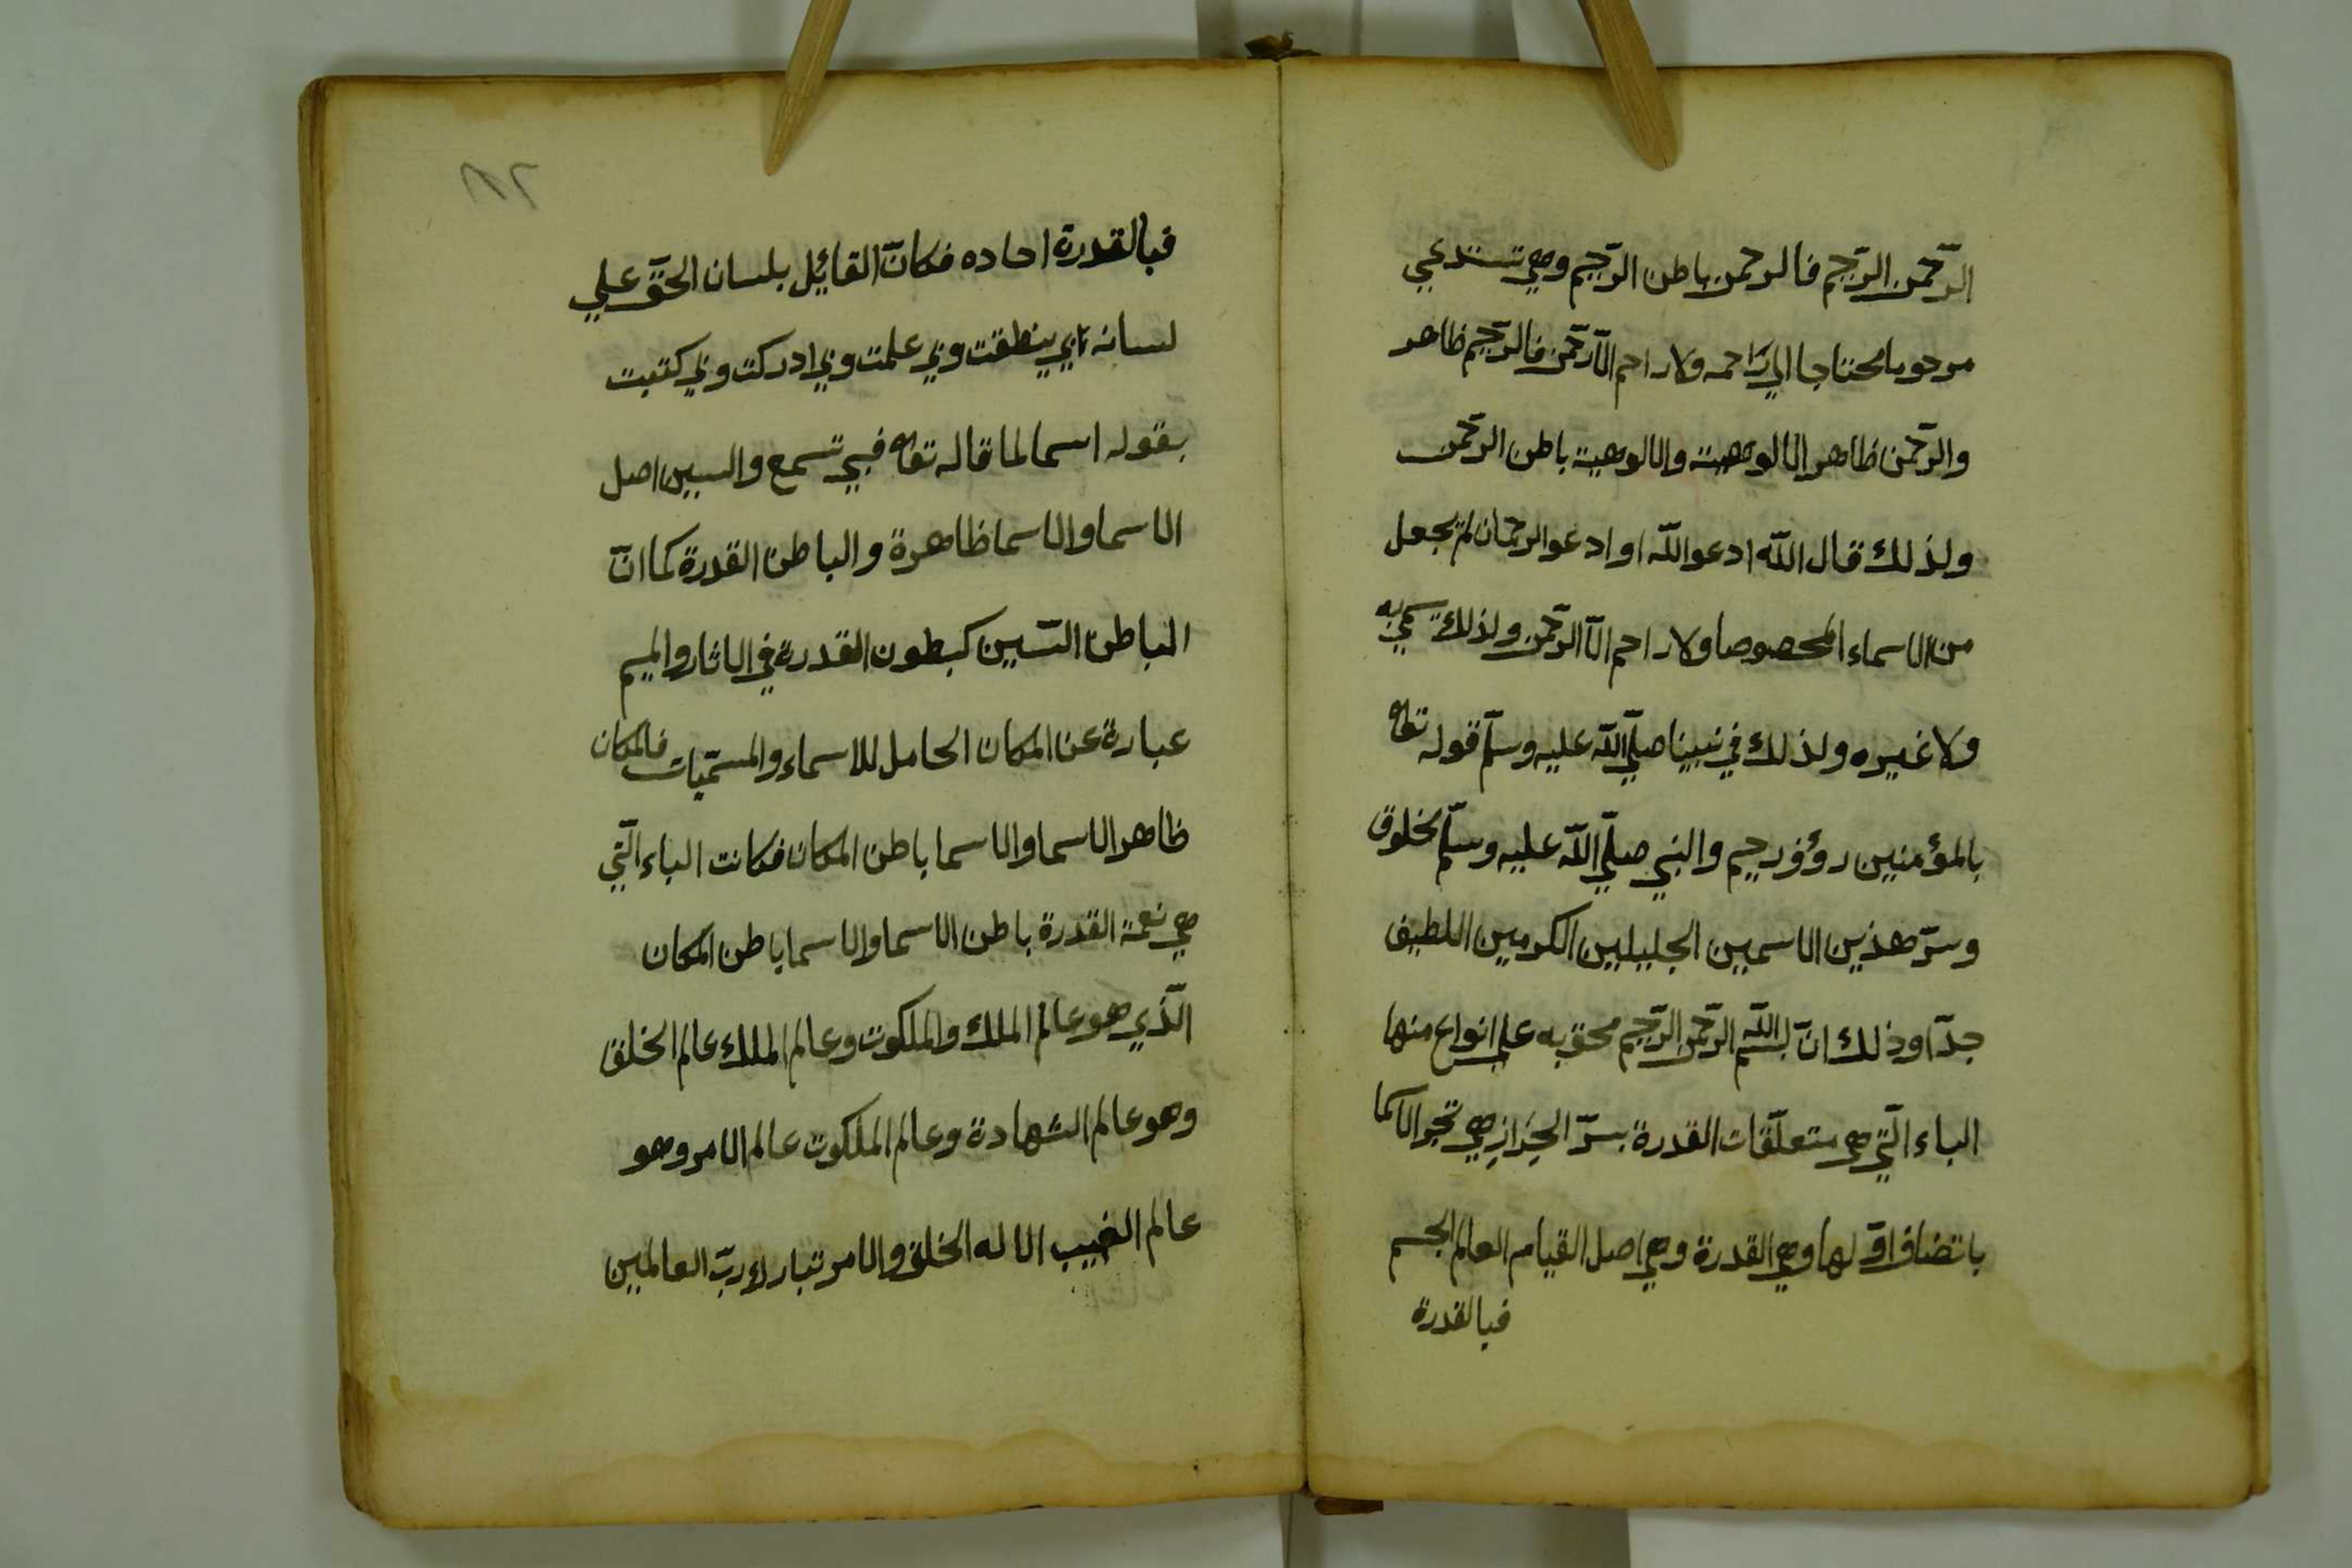 الرّحمن الرّحيم فالرحمن باطن الرّحيم وهي تستدعي
مرحوما محتاجا الي رَاحمه ولا راحم الّا رّحمن فالرّحيم ظاهر
والرّحمن ظاهر الالوهية والالوهية باطن الرحمن
ولذلك قال اللّه ادعو اللّه او ادعو الرحمان لم يجعل
من الاسماء المخصوصا ولا راحم الّا الرّحمن ولذلك تسمي به
ولا غيره ولذلك في نبينا صلّي اللّه عليه وسلّم قوله تعالي
بالمؤمنين رؤف رحيم والنبي صلّي اللّه عليه وسلّم مخلوق
وسرّ هذين الاسمين الجليلين الكرمين اللطيف
جدّا وذلك انّ بسم اللّه الرّحمن الرّحيم محتو به علي انواع منها
الباء الّتي هي متعلّقات القدرة بسرّ الجرّ اذ هي تجر الاسما
باتضاف اوّلها وهي القدرة وهي اصل القيام العالم الجسم
فبالقدرة
١٨٢
فبالقدرة احاده فكانّ القائل بلسان الحقّ علي
لسانه بي ينطقت وبي علمت وبي ادركت وبي كتبت
بقوله اسما لما قاله تعالي فبي تسمع والسين اصل
الاسما والاسما ظاهرة والباطن القدرة كما انّ
الباطن السّين كبطون القدرة في الاثار والميم
عبارة عن المكان الحامل للاسماء والمسمّيات فالمكان
ظاهر الاسما والاسما باطن المكان فكانت الباء الّتي
هي نعمة القدرة باطن الاسما والاسما باطن المكان
الّذي هو عالم الملك والملكوت وعالم الملك عالم الخلق
وهو عالم الشهادة وعالم الملكوت عالم الامر وهو
عالم الغيب الا له الخلق والامر تبارك ربّ العالمين